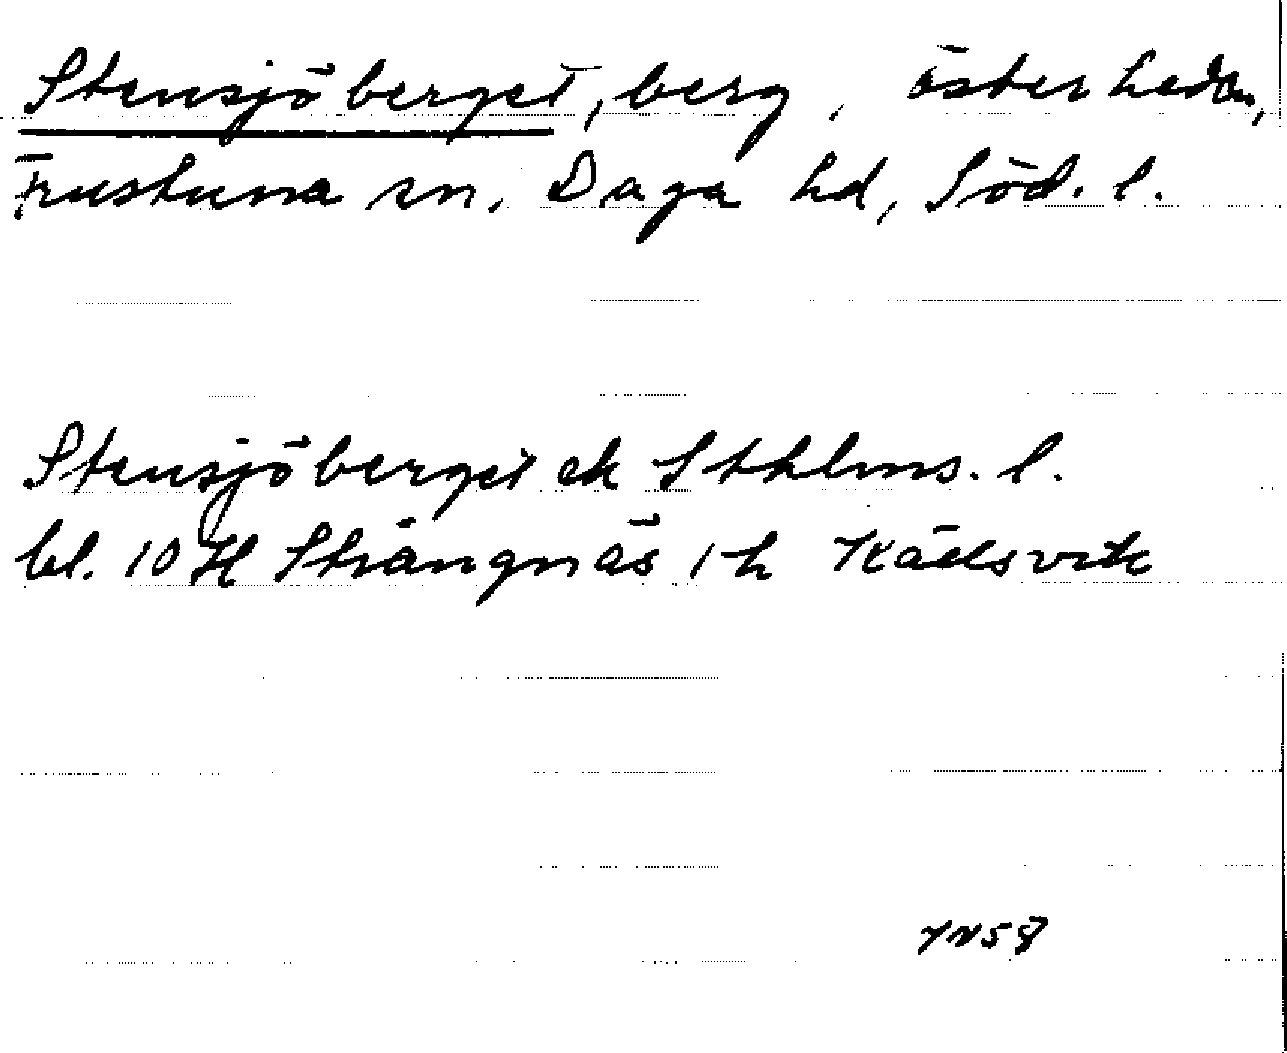 Stensjöberget, berg, Österheden,
Frustuna sn. Daga hd, Söd. l.
Stensjöberget ek Sthlms. l.
bl. 10 H Strängnäs 1 h Källsvik
YN58